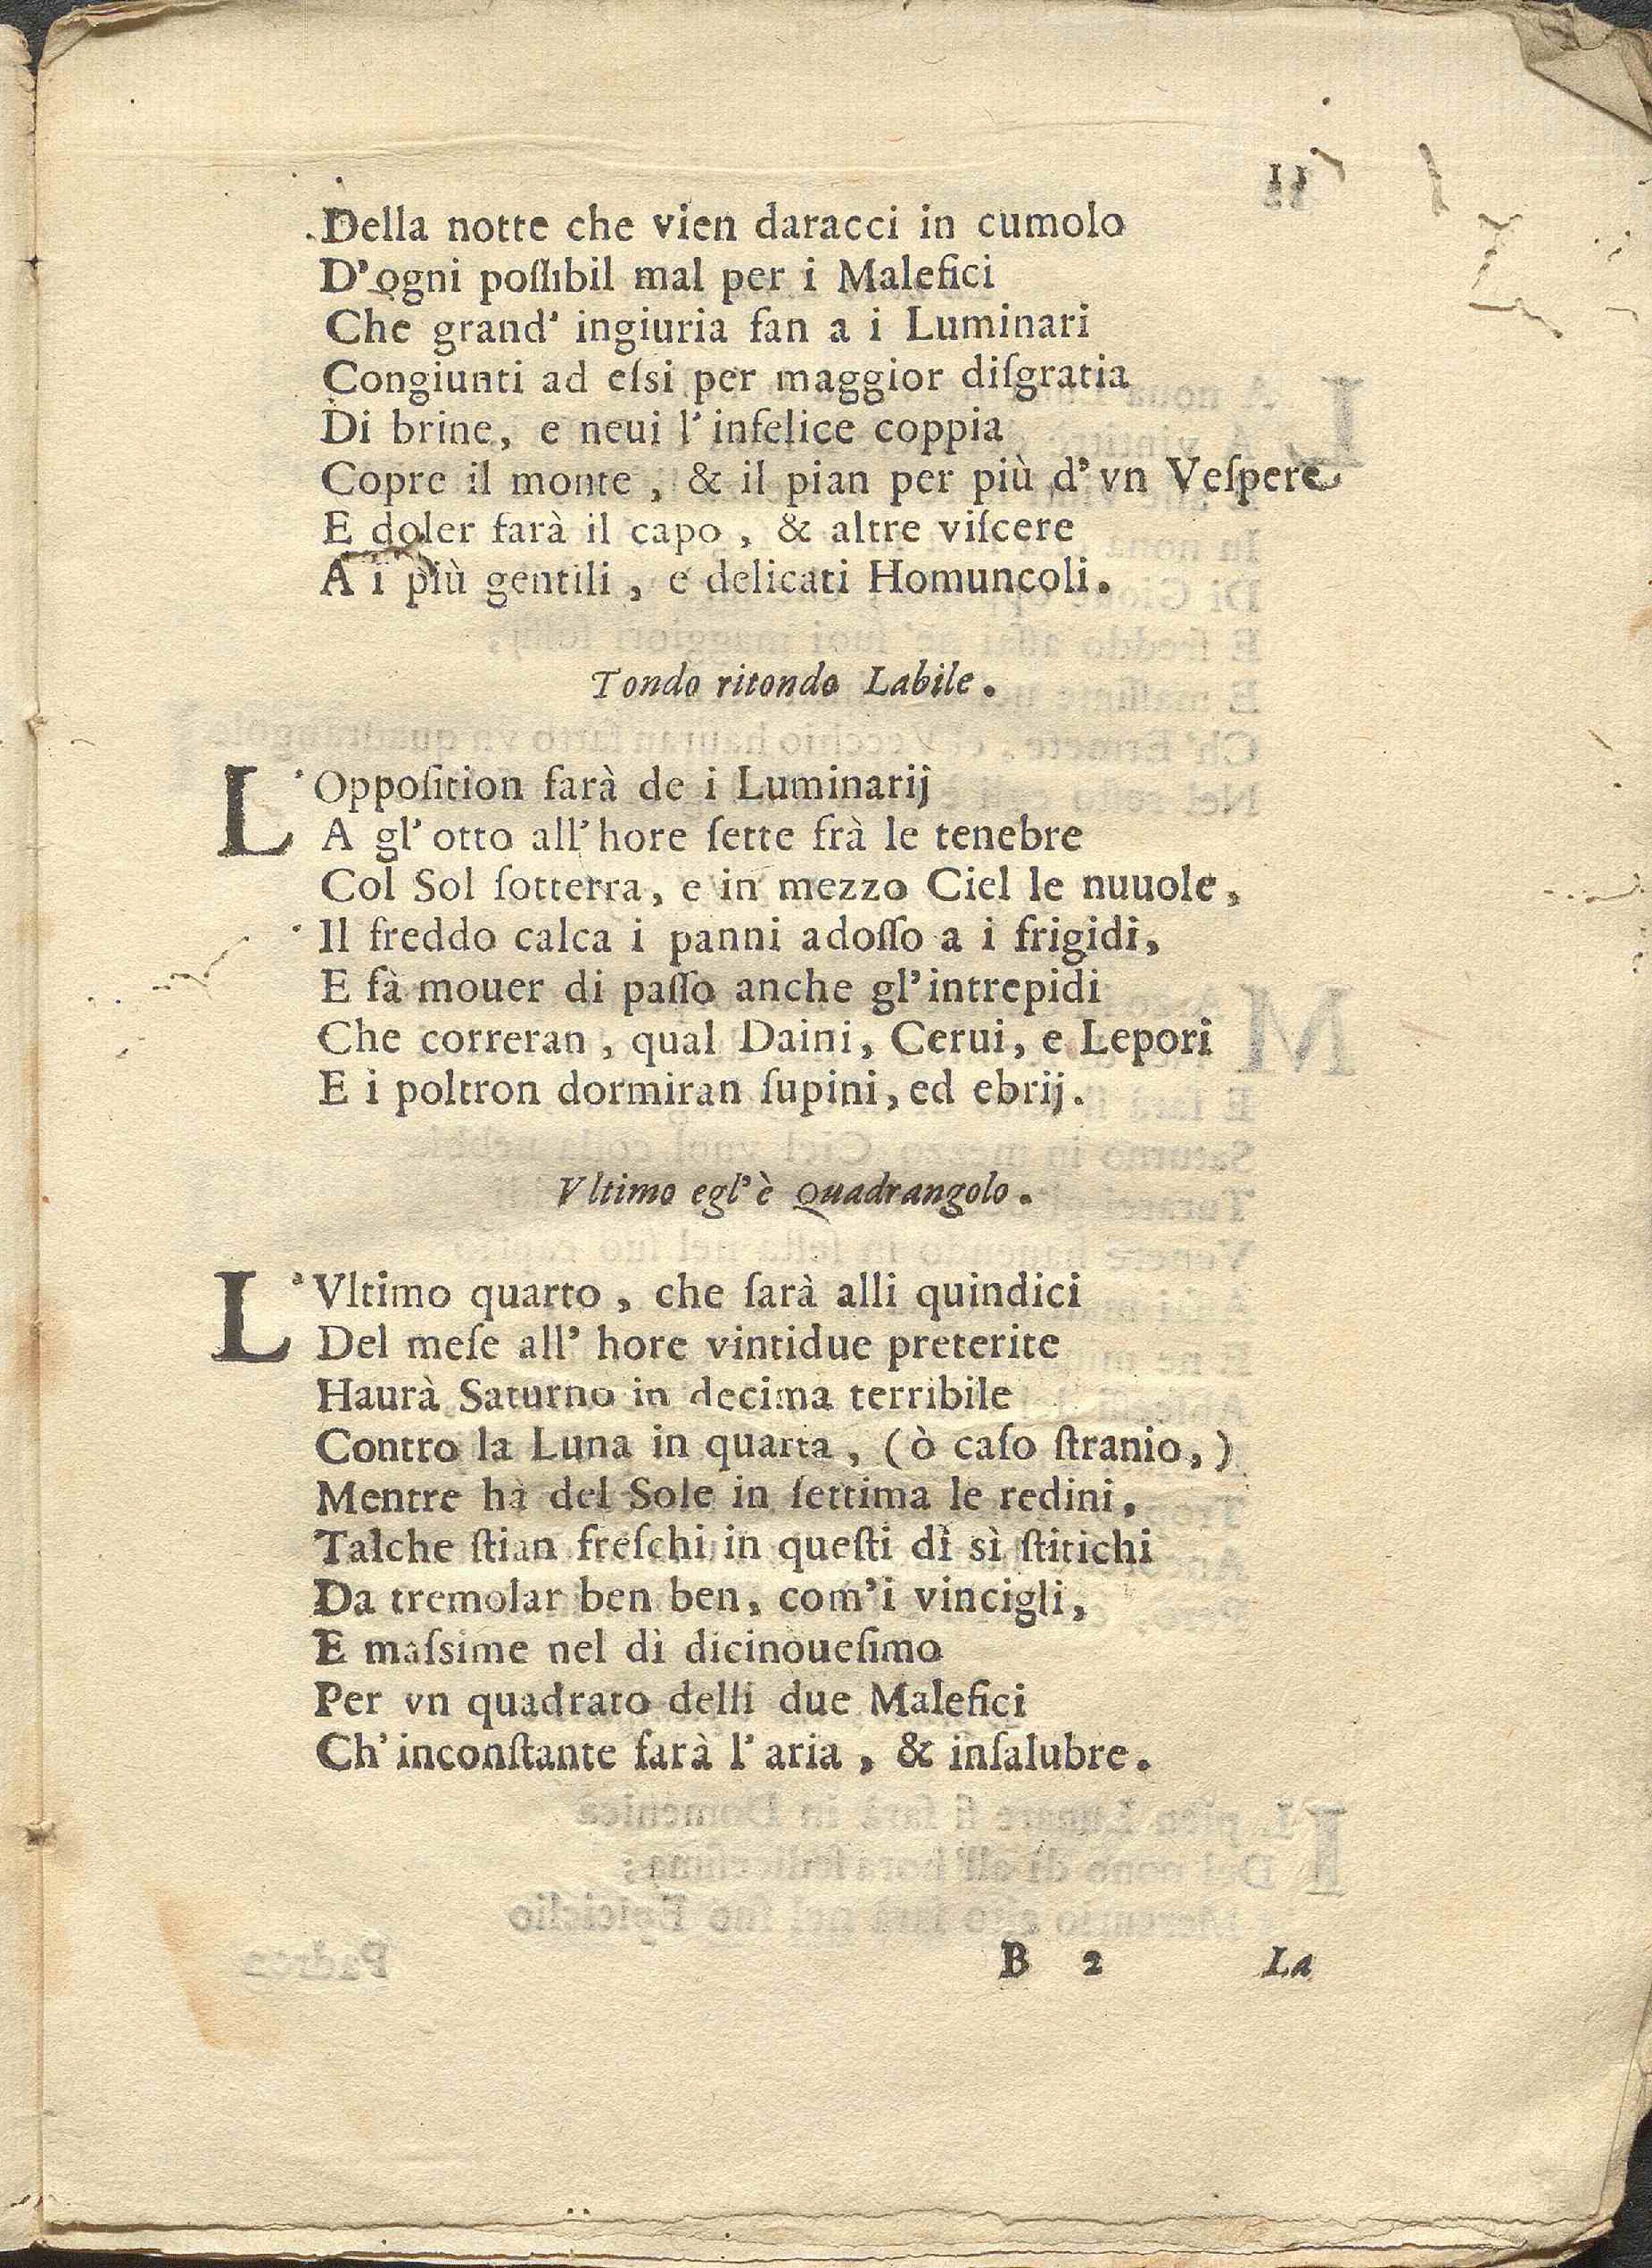 11
Della notte che vien daracci in cumolo
D'ogni poſſibil mal per i Malefici
Che grand' ingiuria fan a i Luminari
Congiunti ad eſsi per maggior diſgratia
Di brine, e neui l'infelice coppia
Copre il monte, & il pian per più d'vn Veſpere
E doler farà il capo, & altre viſcere
A i più gentili, e delicati Homuncoli.
Tondo ritondo Labile.
L'Oppoſition farà de i Luminarij
A gl'otto all'hore ſette frà le tenebre
Col Sol ſotterra, e in mezzo Ciel le nuuole,
Il freddo calca i panni adoſſo a i frigidi,
E fà mouer di paſſo anche gl'intrepidi
Che correran, qual Daini, Cerui, e Lepori
E i poltron dormiran ſupini, ed ebrij.
Vltimo egl'è Quadrangolo.
L'Vltimo quarto, che ſarà alli quindici
Del meſe all' hore vintidue preterite
Haurà Saturno in decima terribile
Contro la Luna in quarta, (ò caſo ſtranio,)
Mentre hà del Sole in ſettima le redini,
Talche ſtian freſchi in queſti dì sì ſtitichi
Da tremolar ben ben, com'i vincigli,
E maſsime nel dì dicinoueſimo
Per vn quadrato delli due Malefici
Ch'inconſtante farà l'aria, & inſalubre.
B 2 La